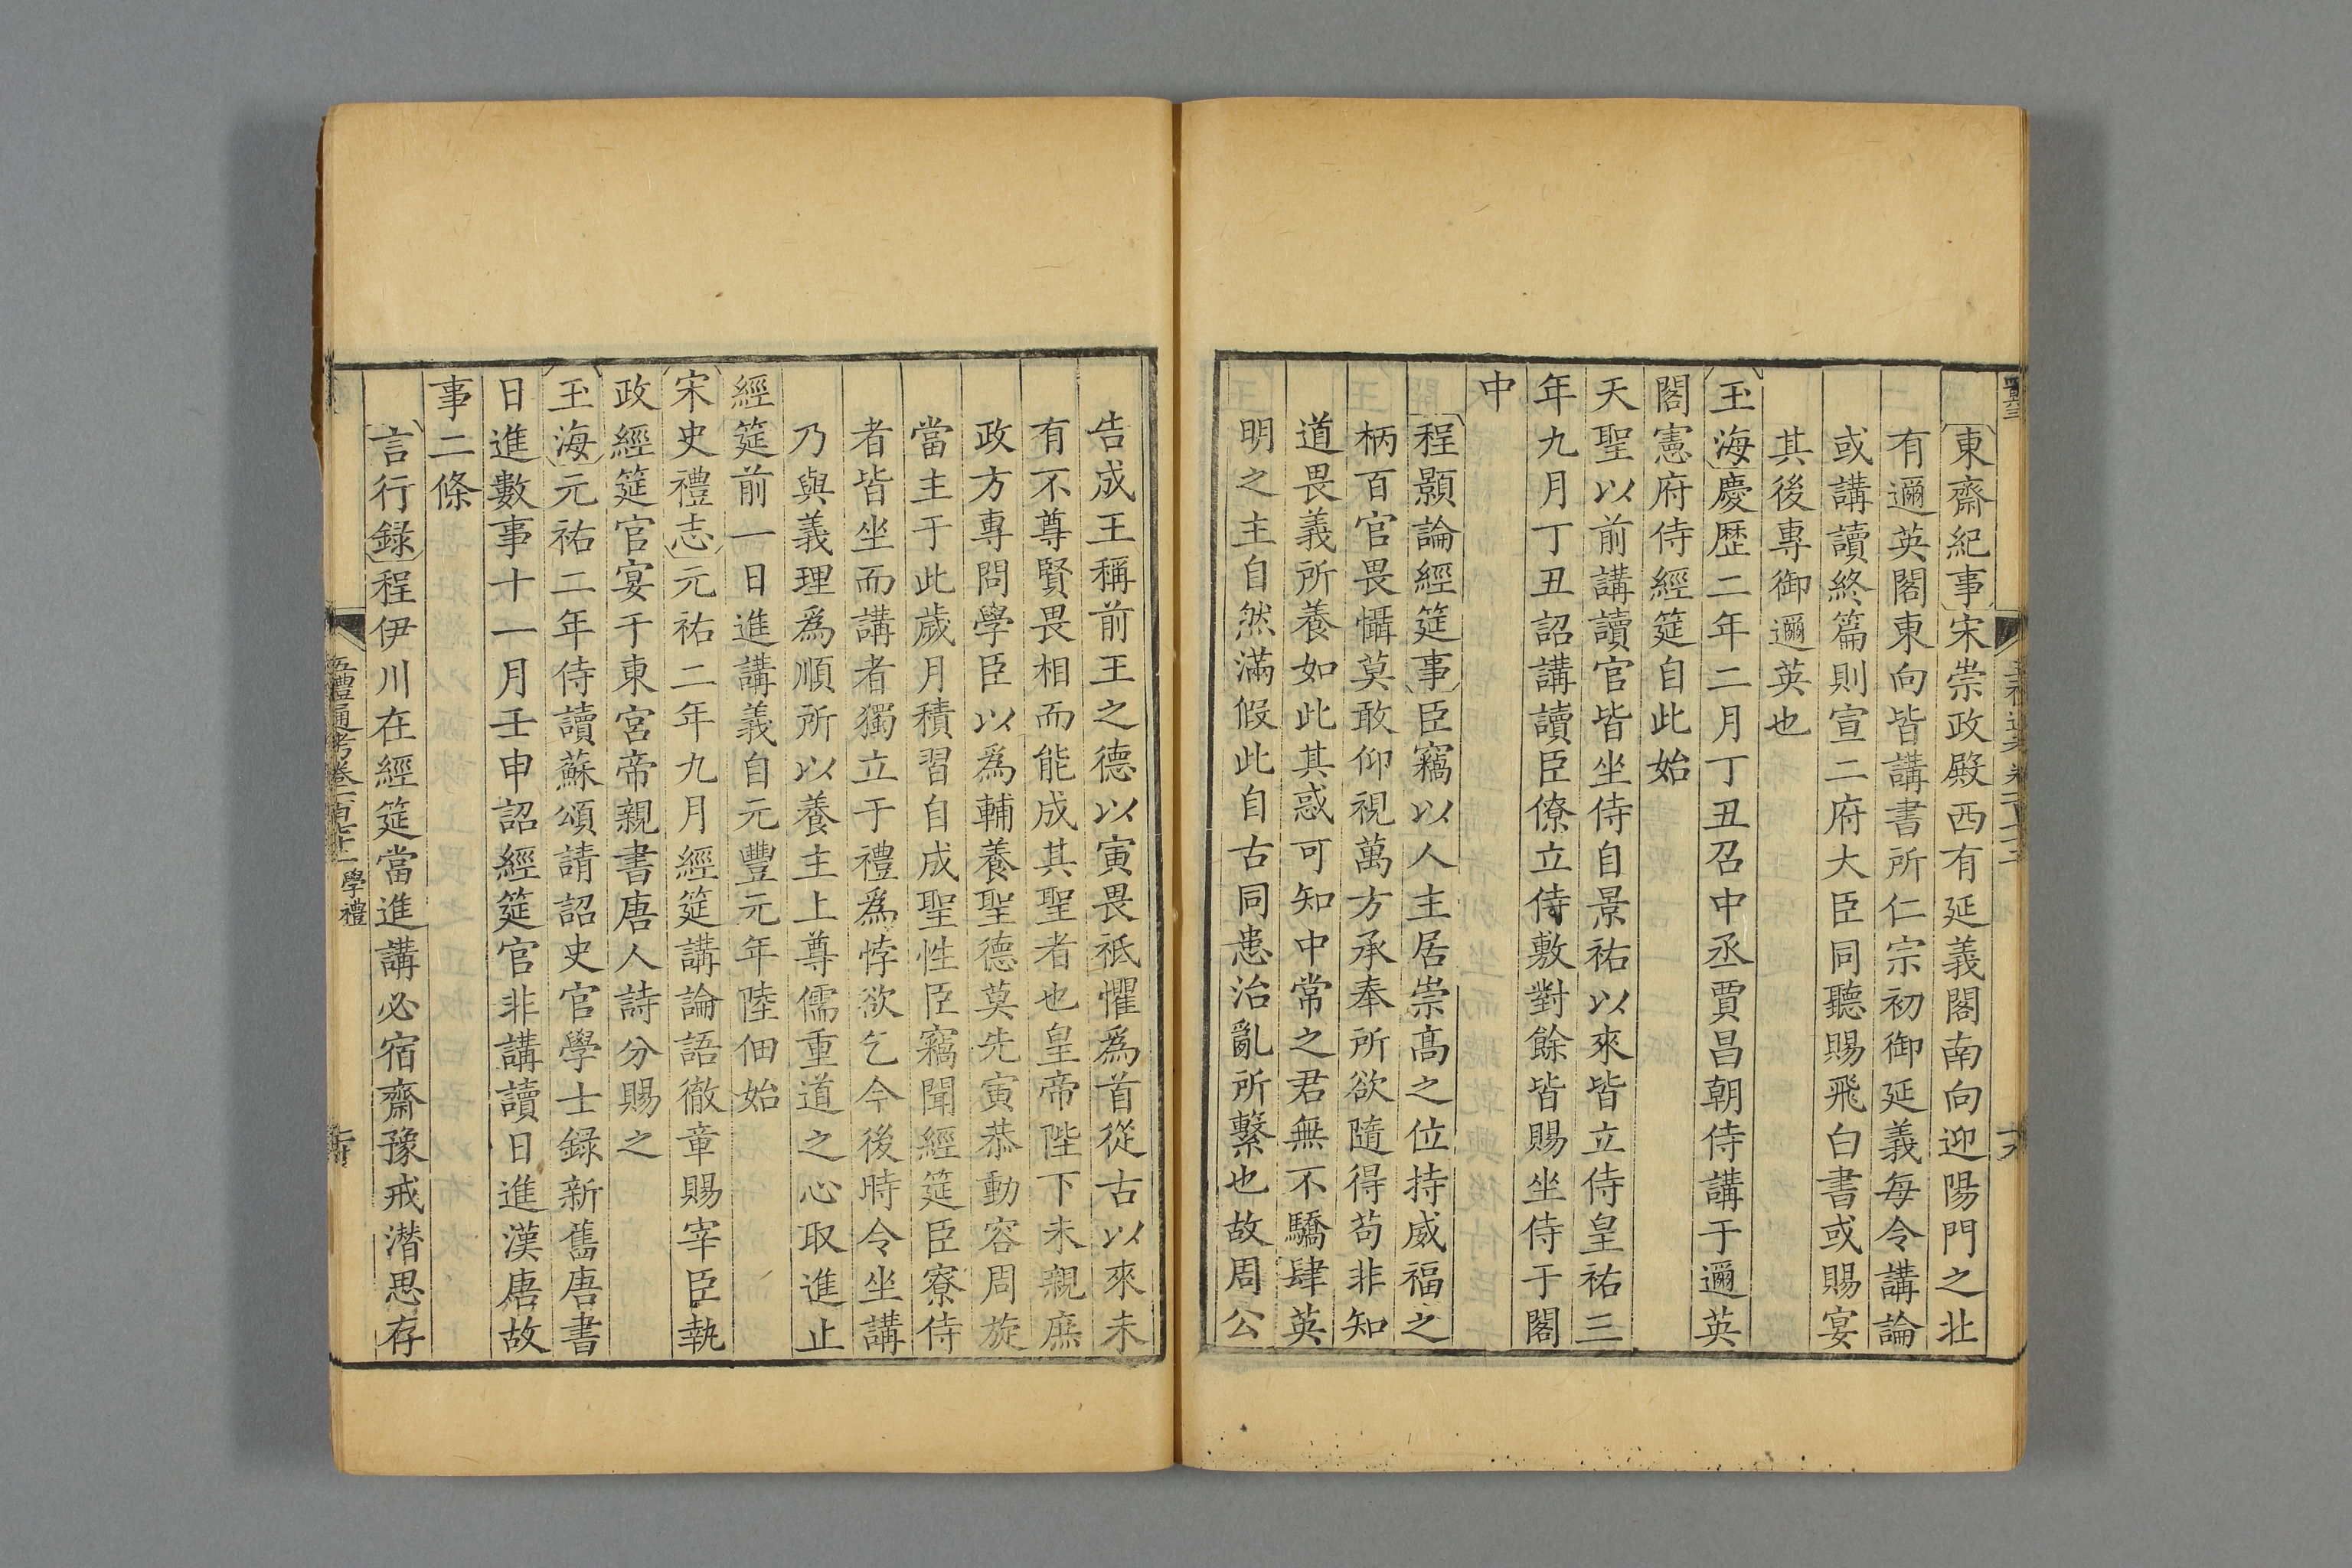 東齋紀事宋崇政殿西有延義閣南向迎陽門之北
有邇英閣東向皆講書所仁宗初御延義每令講論
或講讀終篇則宣二府大臣同聽賜飛白書或賜宴
其後專御邇英也
玉海慶歴二年二月丁丑召中丞賈昌朝侍講于邇英
閣憲府侍經筵自此始
天聖以前講讀官皆坐侍自景祐以來皆立侍皇祐三
年九月丁丑詔講讀臣僚立侍敷對餘皆賜坐侍于閣
中
程顥論經筵事臣竊以人主居崇高之位持威福之
柄百官畏懾莫敢仰視萬方承奉所欲隨得苟非知
道畏義所養如此其惑可知中常之君無不驕肆英
明之主自然滿假此自古同患治亂所繫也故周公
告成王稱前王之德以寅畏祇懼爲首從古以來未
有不尊賢畏相而能成其聖者也皇帝陛下未親庶
政方專問學臣以爲輔養聖德莫先寅恭動容周旋
當主于此歲月積習自成聖性臣竊聞經筵臣寮侍
者皆坐而講者獨立于禮爲悖欲乞今後時令坐講
乃與義理爲順所以養主上尊儒重道之心取進止
經筵前一日進講義自元豐元年陸佃始
宋史禮志元祐二年九月經筵講論語徹章賜宰臣執
政經筵官宴于東宮帝親書唐人詩分賜之
玉海元祐二年侍讀蘇頌請詔史官學士録新舊唐書
日進數事十一月壬申詔經筵官非講讀日進漢唐故
事二條
言行録程伊川在經筵當進講必宿齋豫戒潛思存
五禮通考卷一百七十一 學禮